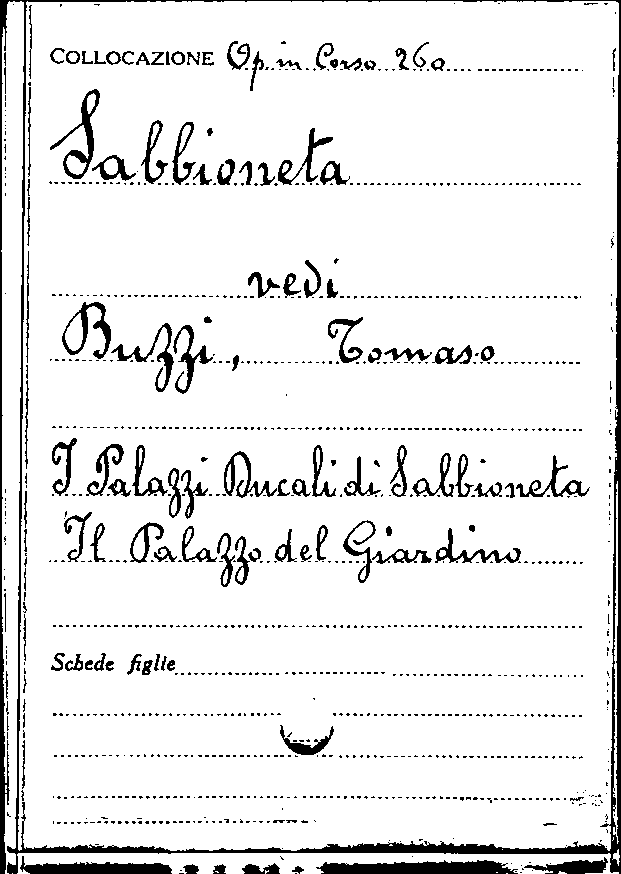 COLLOCAZIONE Op in Corso 260
Sabbioneta
vedi
Buzzi, Tomaso
I Palazzi Ducali di Sabbioneta
Il Palazzo del Giardino
Schede figlie